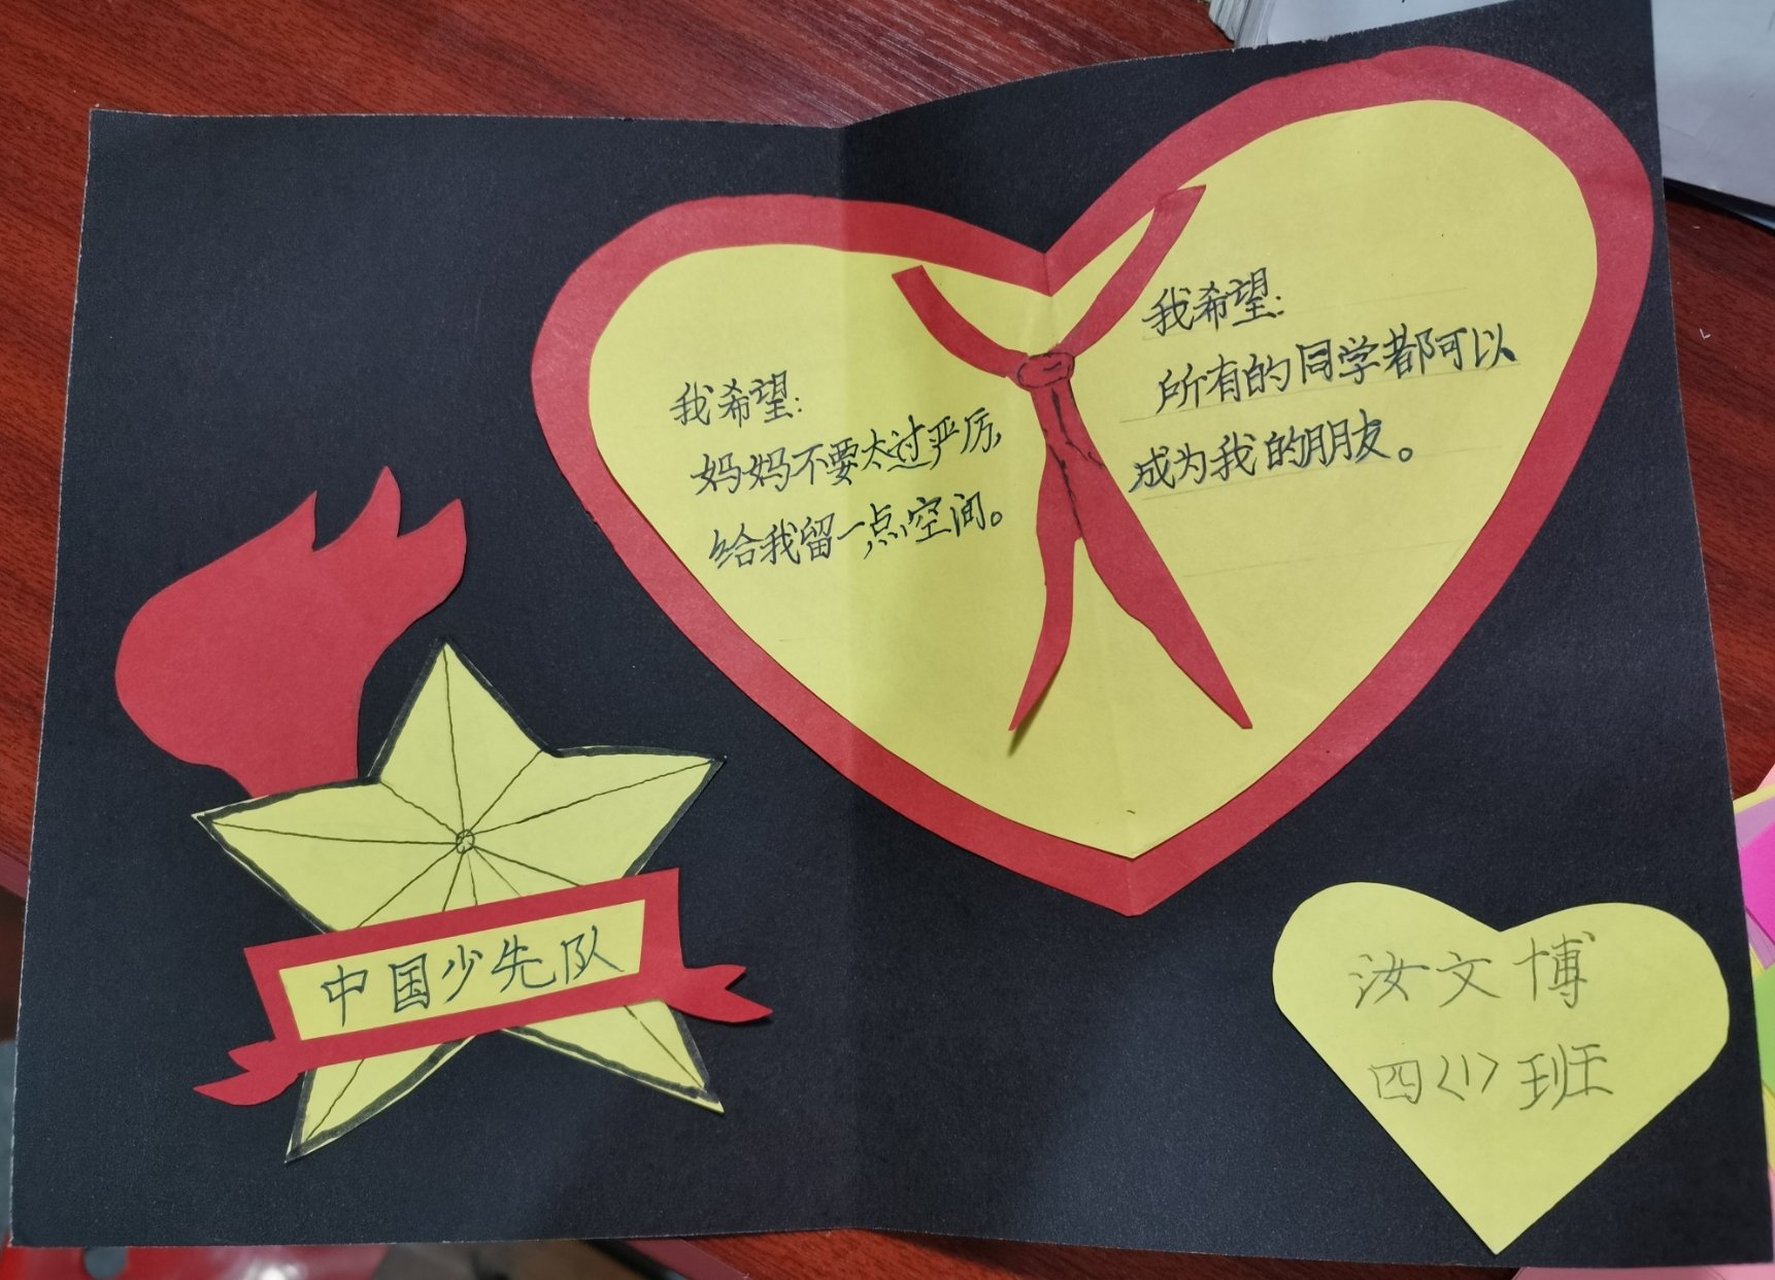 我希望:
妈妈不要太过严厉,
给我留一点空间。
我希望:
所有的同学都可以
成为我的朋友。
中国少先队
汝文博
四<1>班